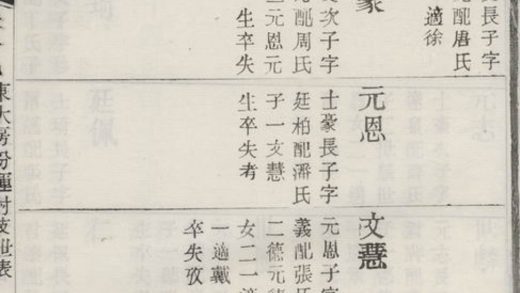 長子字
配唐氏
適徐
豪
次子字
配周氏
元恩元
生卒失
元恩
士豪長子字
廷柏配潘氏
子一文慧
生卒失考
文慧
元恩子字
義配張氏
二德元
女二一適
一適戴
卒失攷
東大房份運村世表